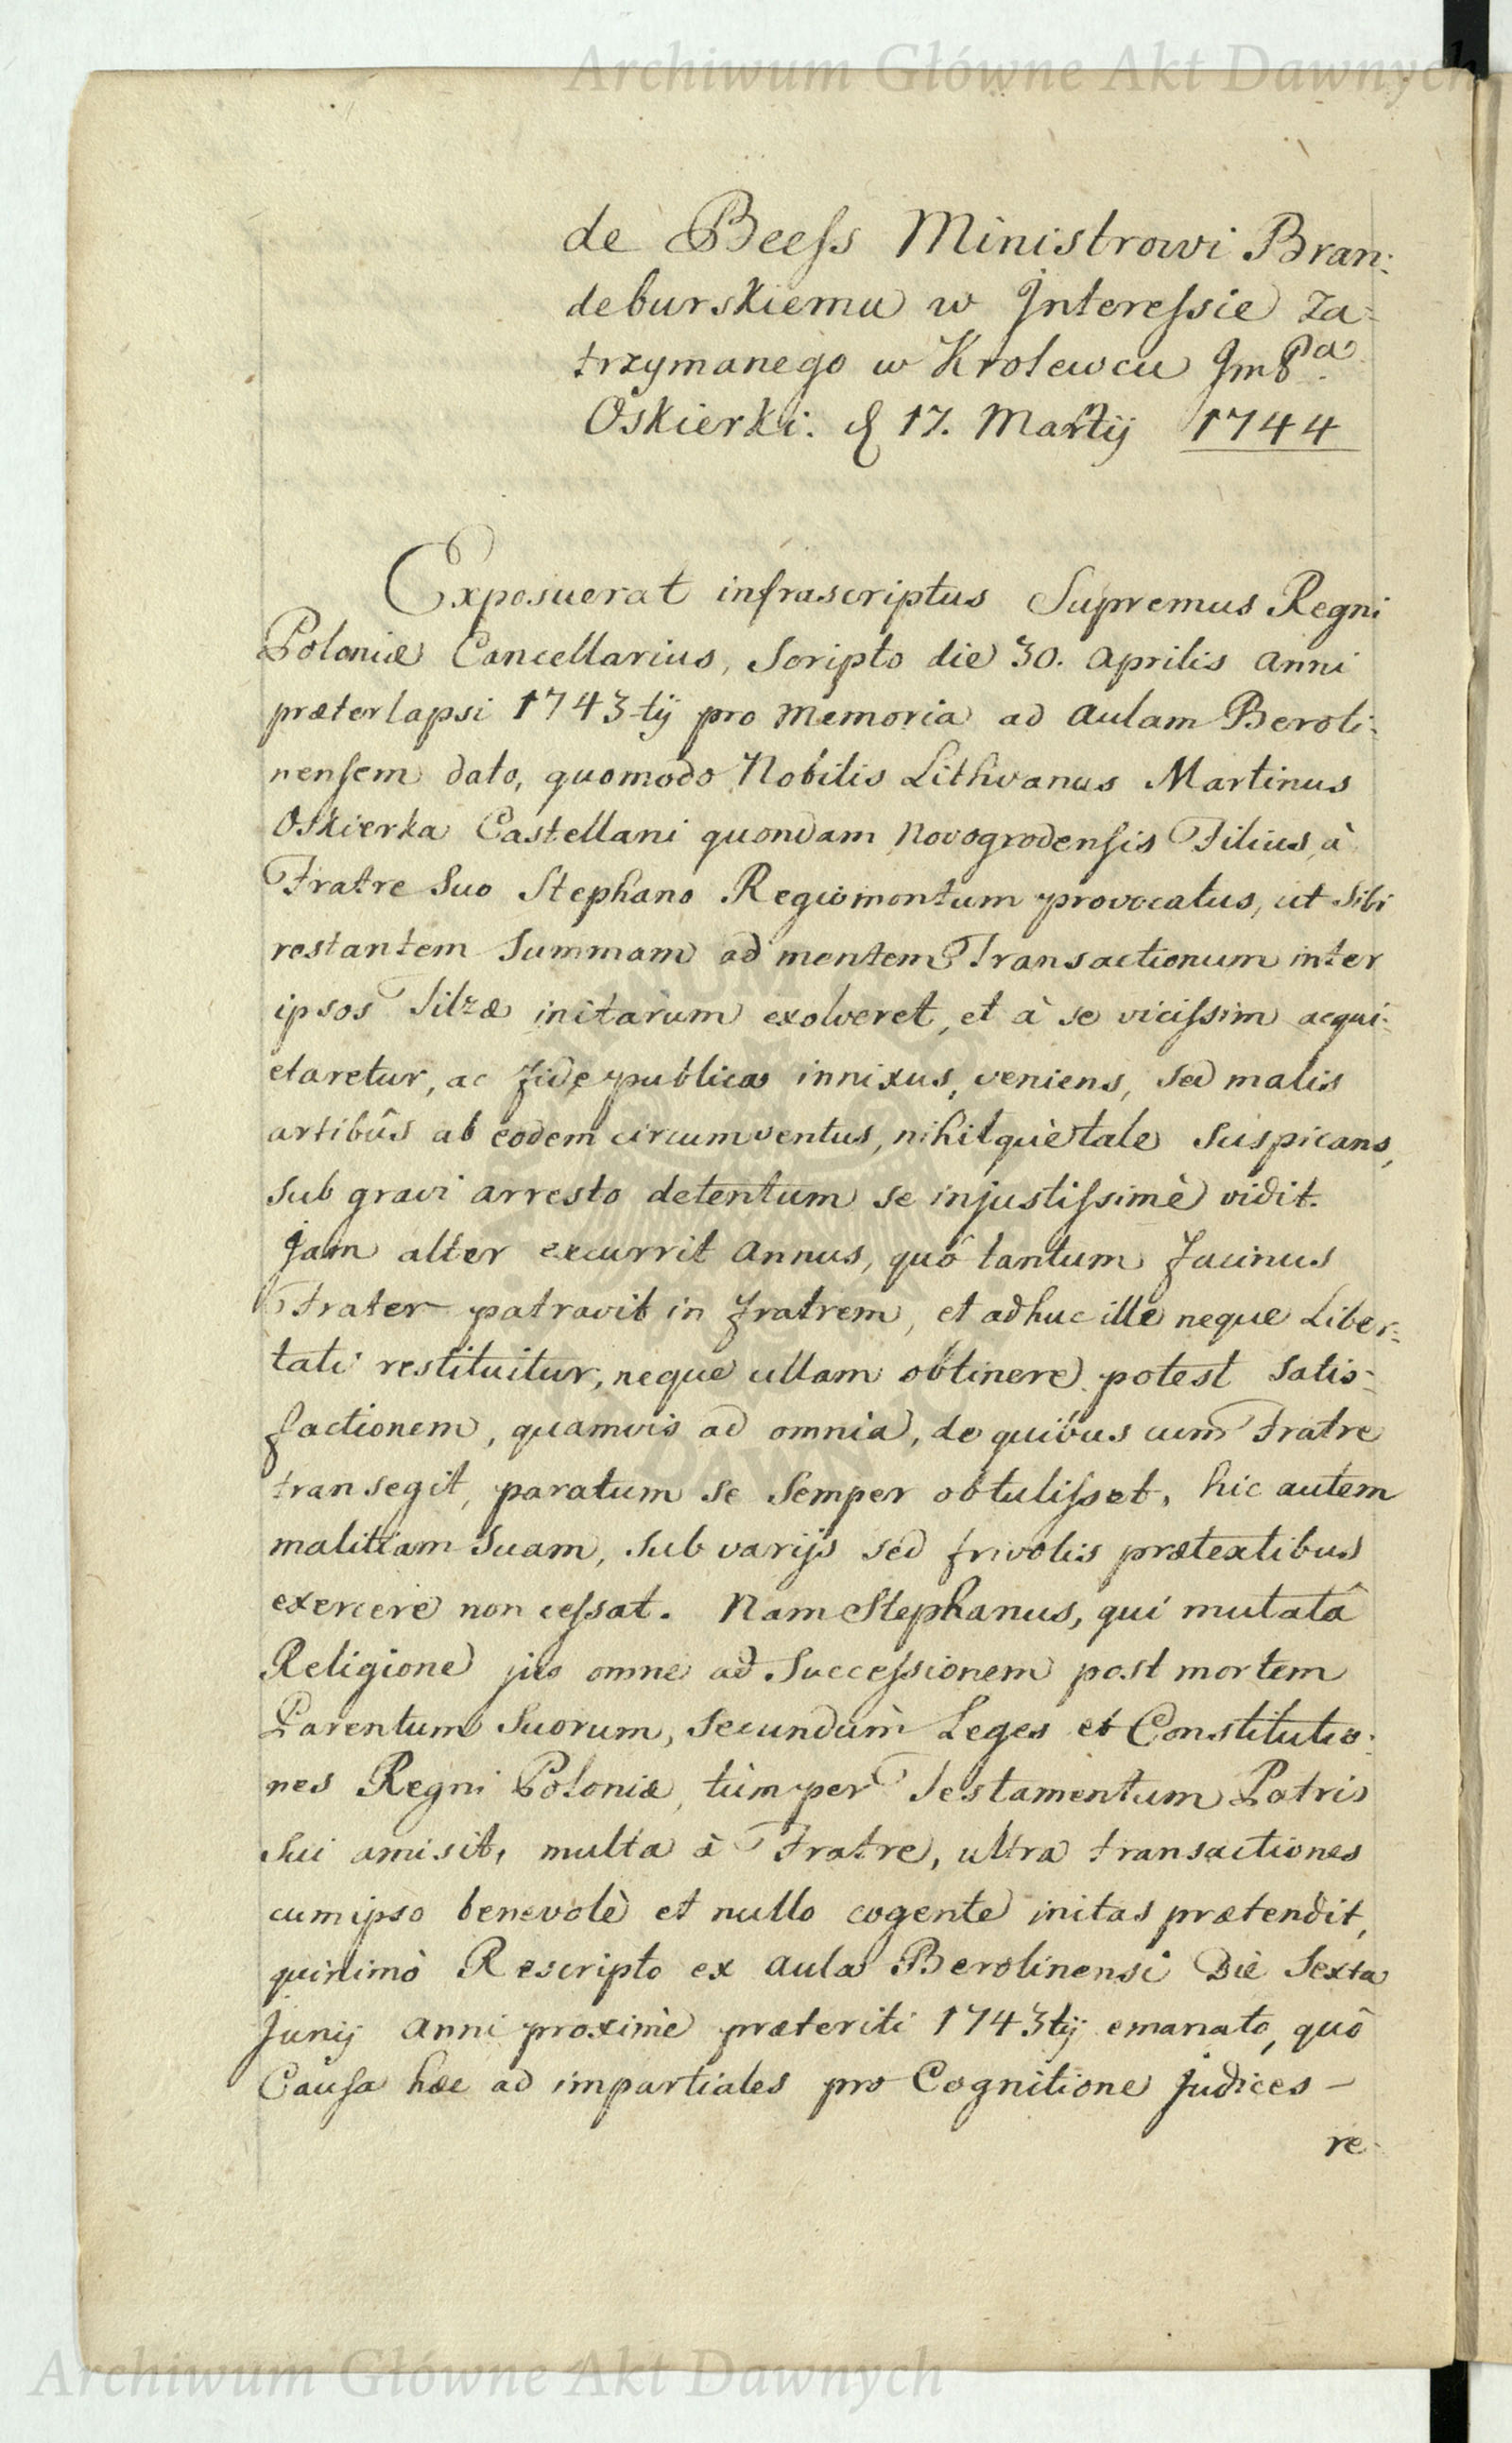 Archiwum Główne Akt Dawnych
de Beeſs Ministrowi Bran:
deburskiemu w Jntereſsie za-
trzymanego w Krolewcu JmPa.
Oskierki. d 17. Martij 1744
Exposuerat infrascriptus Supremus Regni
Poloniæ Cancellarius, Scripto die 30. Aprilis Anni
præterlapsi 1743-tij pro Memoria ad Aulam Beroli:
nenſem dato, quomodo Nobilis Lithvanus Martinus
Oskierka Castellani quondam Novogrodenſis Filius, à
Fratre Suo Stephano Regiomontum provocatus, ut Sibi
restantem Summam ad mentem Transactionum inter
ipsos Tilzæ initarum exolveret, et à se viciſsim acqui:
etaretur, ac fide publica innixus, veniens, Sed malis
artibûs ab eodem circumventus, nihilquè tale Suspicans,
Sub gravi arresto detentum se injustiſsimè vidit.
Jam alter excurrit Annus, quô tantum facinus
Frater patravit in fratrem, et adhuc ille neque Liber:
tati restituitur, neque ullam obtinere potest Satis-
factionem, quamvis ad omnia, de quibus cum Fratre
transegit, paratum se Semper obtuliſset, hic autem
malitiam Suam, Sub varijs sed frivolis prætextibus
exercere non ceſsat. Nam Stephanus, qui mutatâ
Religione jus omne ad Succeſsionem post mortem
Parentum Suorum, Secundùm Leges et Constitutio:
nes Regni Poloniæ, tùm per Testamentum Patris
Sui amisit, multa à Fratre, ultra transactiones
cum ipso benevolè et nullo cogente initas prætendit,
quinimò Rescripto ex Aula Berolinensi Die Sexta
Junij Anni proximè præteriti 1743tij emanato, quô
Cauſa hæc ad impartiales pro Cognitione Judices –
re-
Archiwum Główne Akt Dawnych